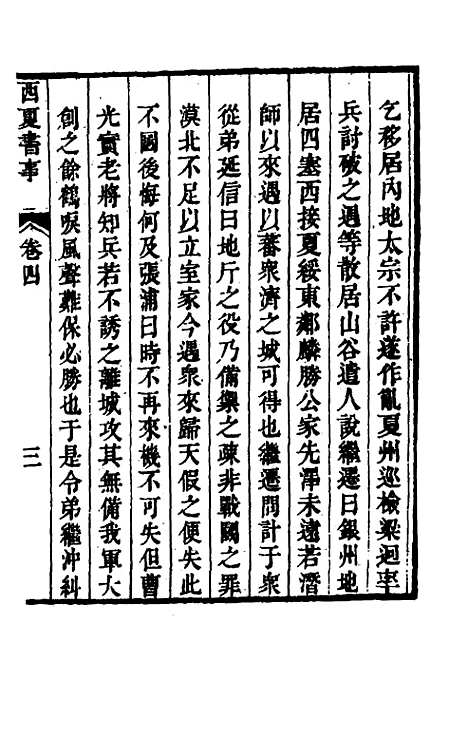 乞移居內地太宗不許遂作亂夏州巡檢梁迥率
兵討破之遇等散居山谷遣人說繼遷曰銀州地
居四塞西接夏綏東鄰麟勝公家先澤未遠若潛
師以來遇以蕃衆濟之城可得也繼遷問計于衆
從弟延信曰地斤之役乃備禦之疎非戰鬭之罪
漠北不足以立室家今遇衆來歸天假之便失此
不圖後悔何及張浦曰時不再來機不可失但曹
光實老將知兵若不誘之離城攻其無備我軍大
創之餘鶴唳風聲難保必勝也于是令弟繼沖糾
西夏書事
卷四
三